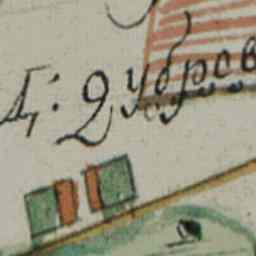 Д: Дубров